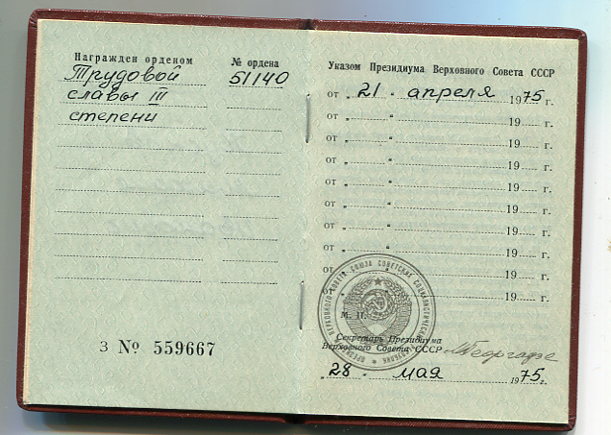 Награжден орденом
№ ордена
Трудовой
51140
славы III
степени
З № 559667
Указом Президиума Верховного Совета СССР
от „ 21 “ апреля 1975 г.
от „ “ 19 г.
от „ “ 19 г.
от „ “ 19 г.
от „ “ 19 г.
от „ “ 19 г.
от „ “ 19 г.
от „ “ 19 г.
от „ “ 19 г.
от „ “ 19 г.
М. П.
Секретарь Президиума
Верховного Совета СССР М Георгадзе
„ 28 “ мая 1975 г.
ПРЕЗИДИУМ ВЕРХОВНОГО СОВЕТА СОЮЗА СОВЕТСКИХ СОЦИАЛИСТИЧЕСКИХ РЕСПУБЛИК